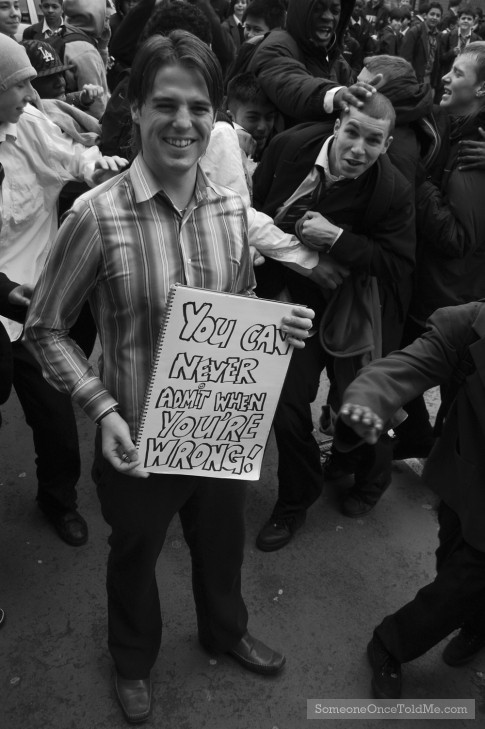 LA
YOU CAN
NEVER
ADMiT WHEN
YOU'RE
WRONG!
SomeoneOnceToldMe.com